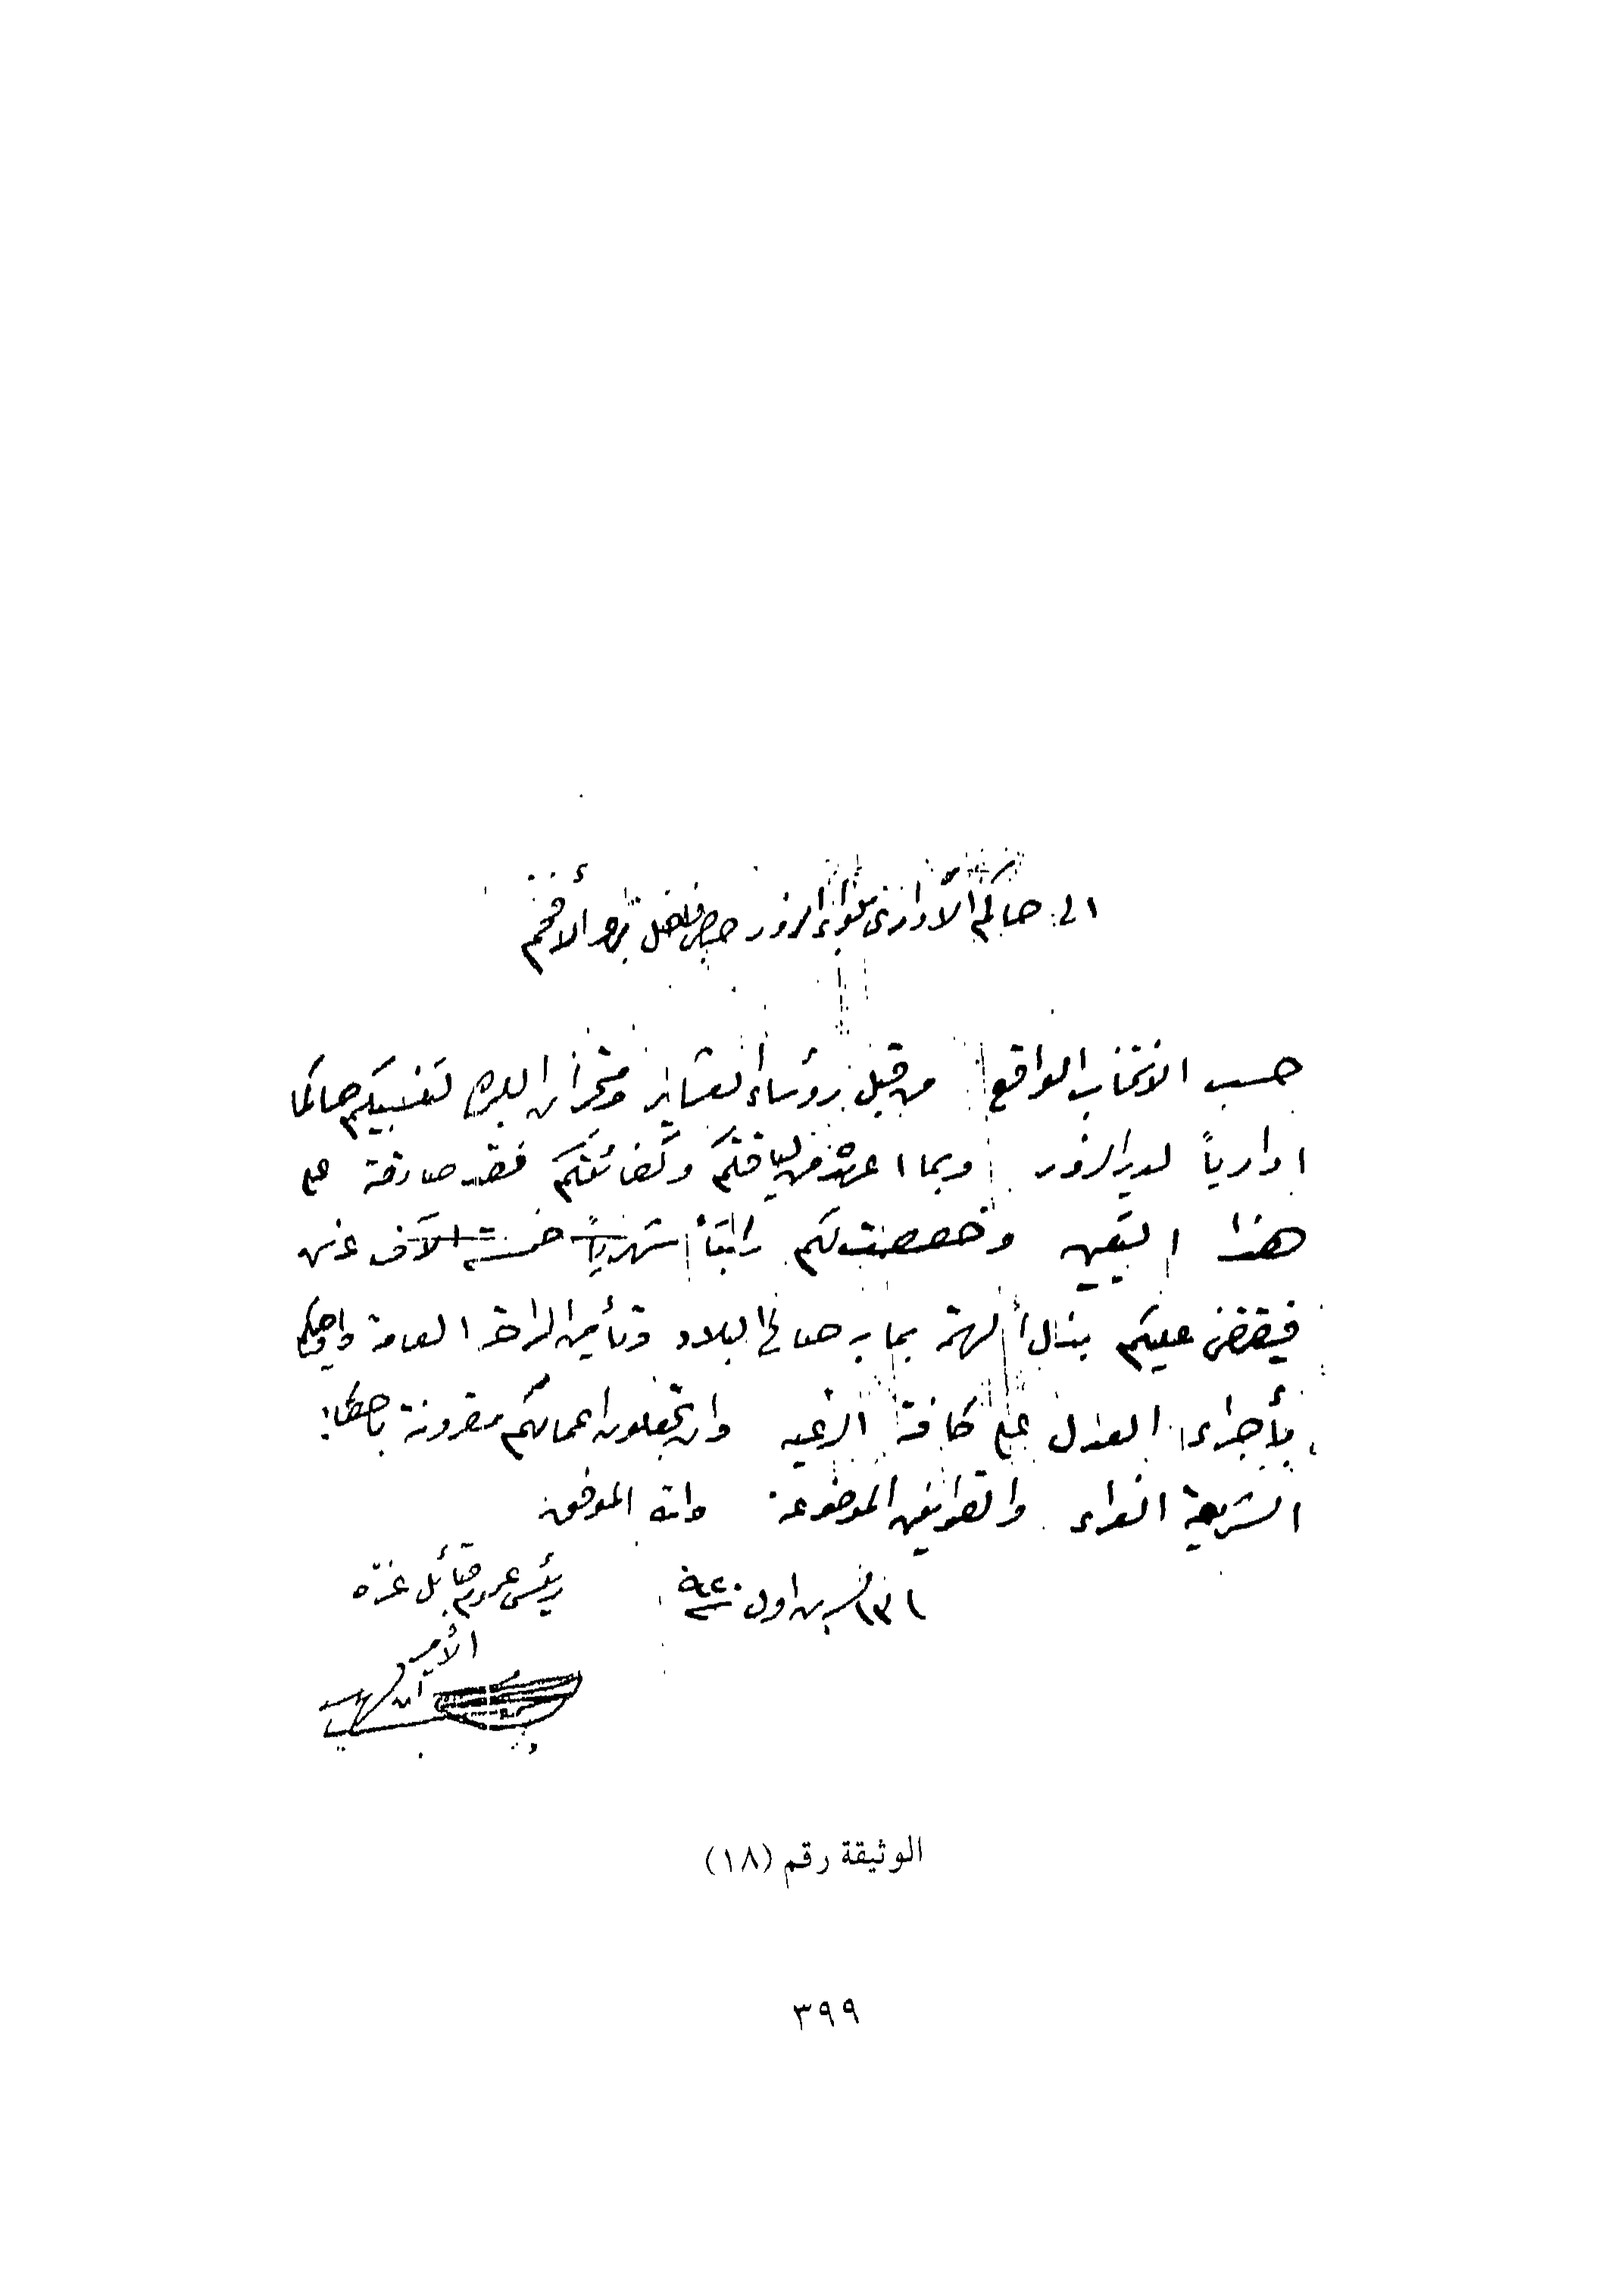 الى حاكم الأداري بلواء الزور حضرة فاضل الأفخم
حسب الانتخاب الواقع من قبل رؤساء العشاير لتنسيبكم حاكما
ادارياً لدير الزور وبما اعهده من لياقتكم وكفائتكم فقد صادقة على
هذا التعيين وخصصت لكم راتباً شهرياً خمسة الآف غرش
فيقتضي عليكم بذل الهمة بما به صالح البلاد وتأمين الراحة العامة
بأجراء العدل على كافة الرعية وان تجعلون اعمالكم مقرونة باحكام
الشريعة الغراء والقوانين الموضوعة والله الموفق
تشرين اول ٩٢٠
رئيس عموم قبائل عنزه
الأمير
الوثيقة رقم (١٨)
٣٩٩